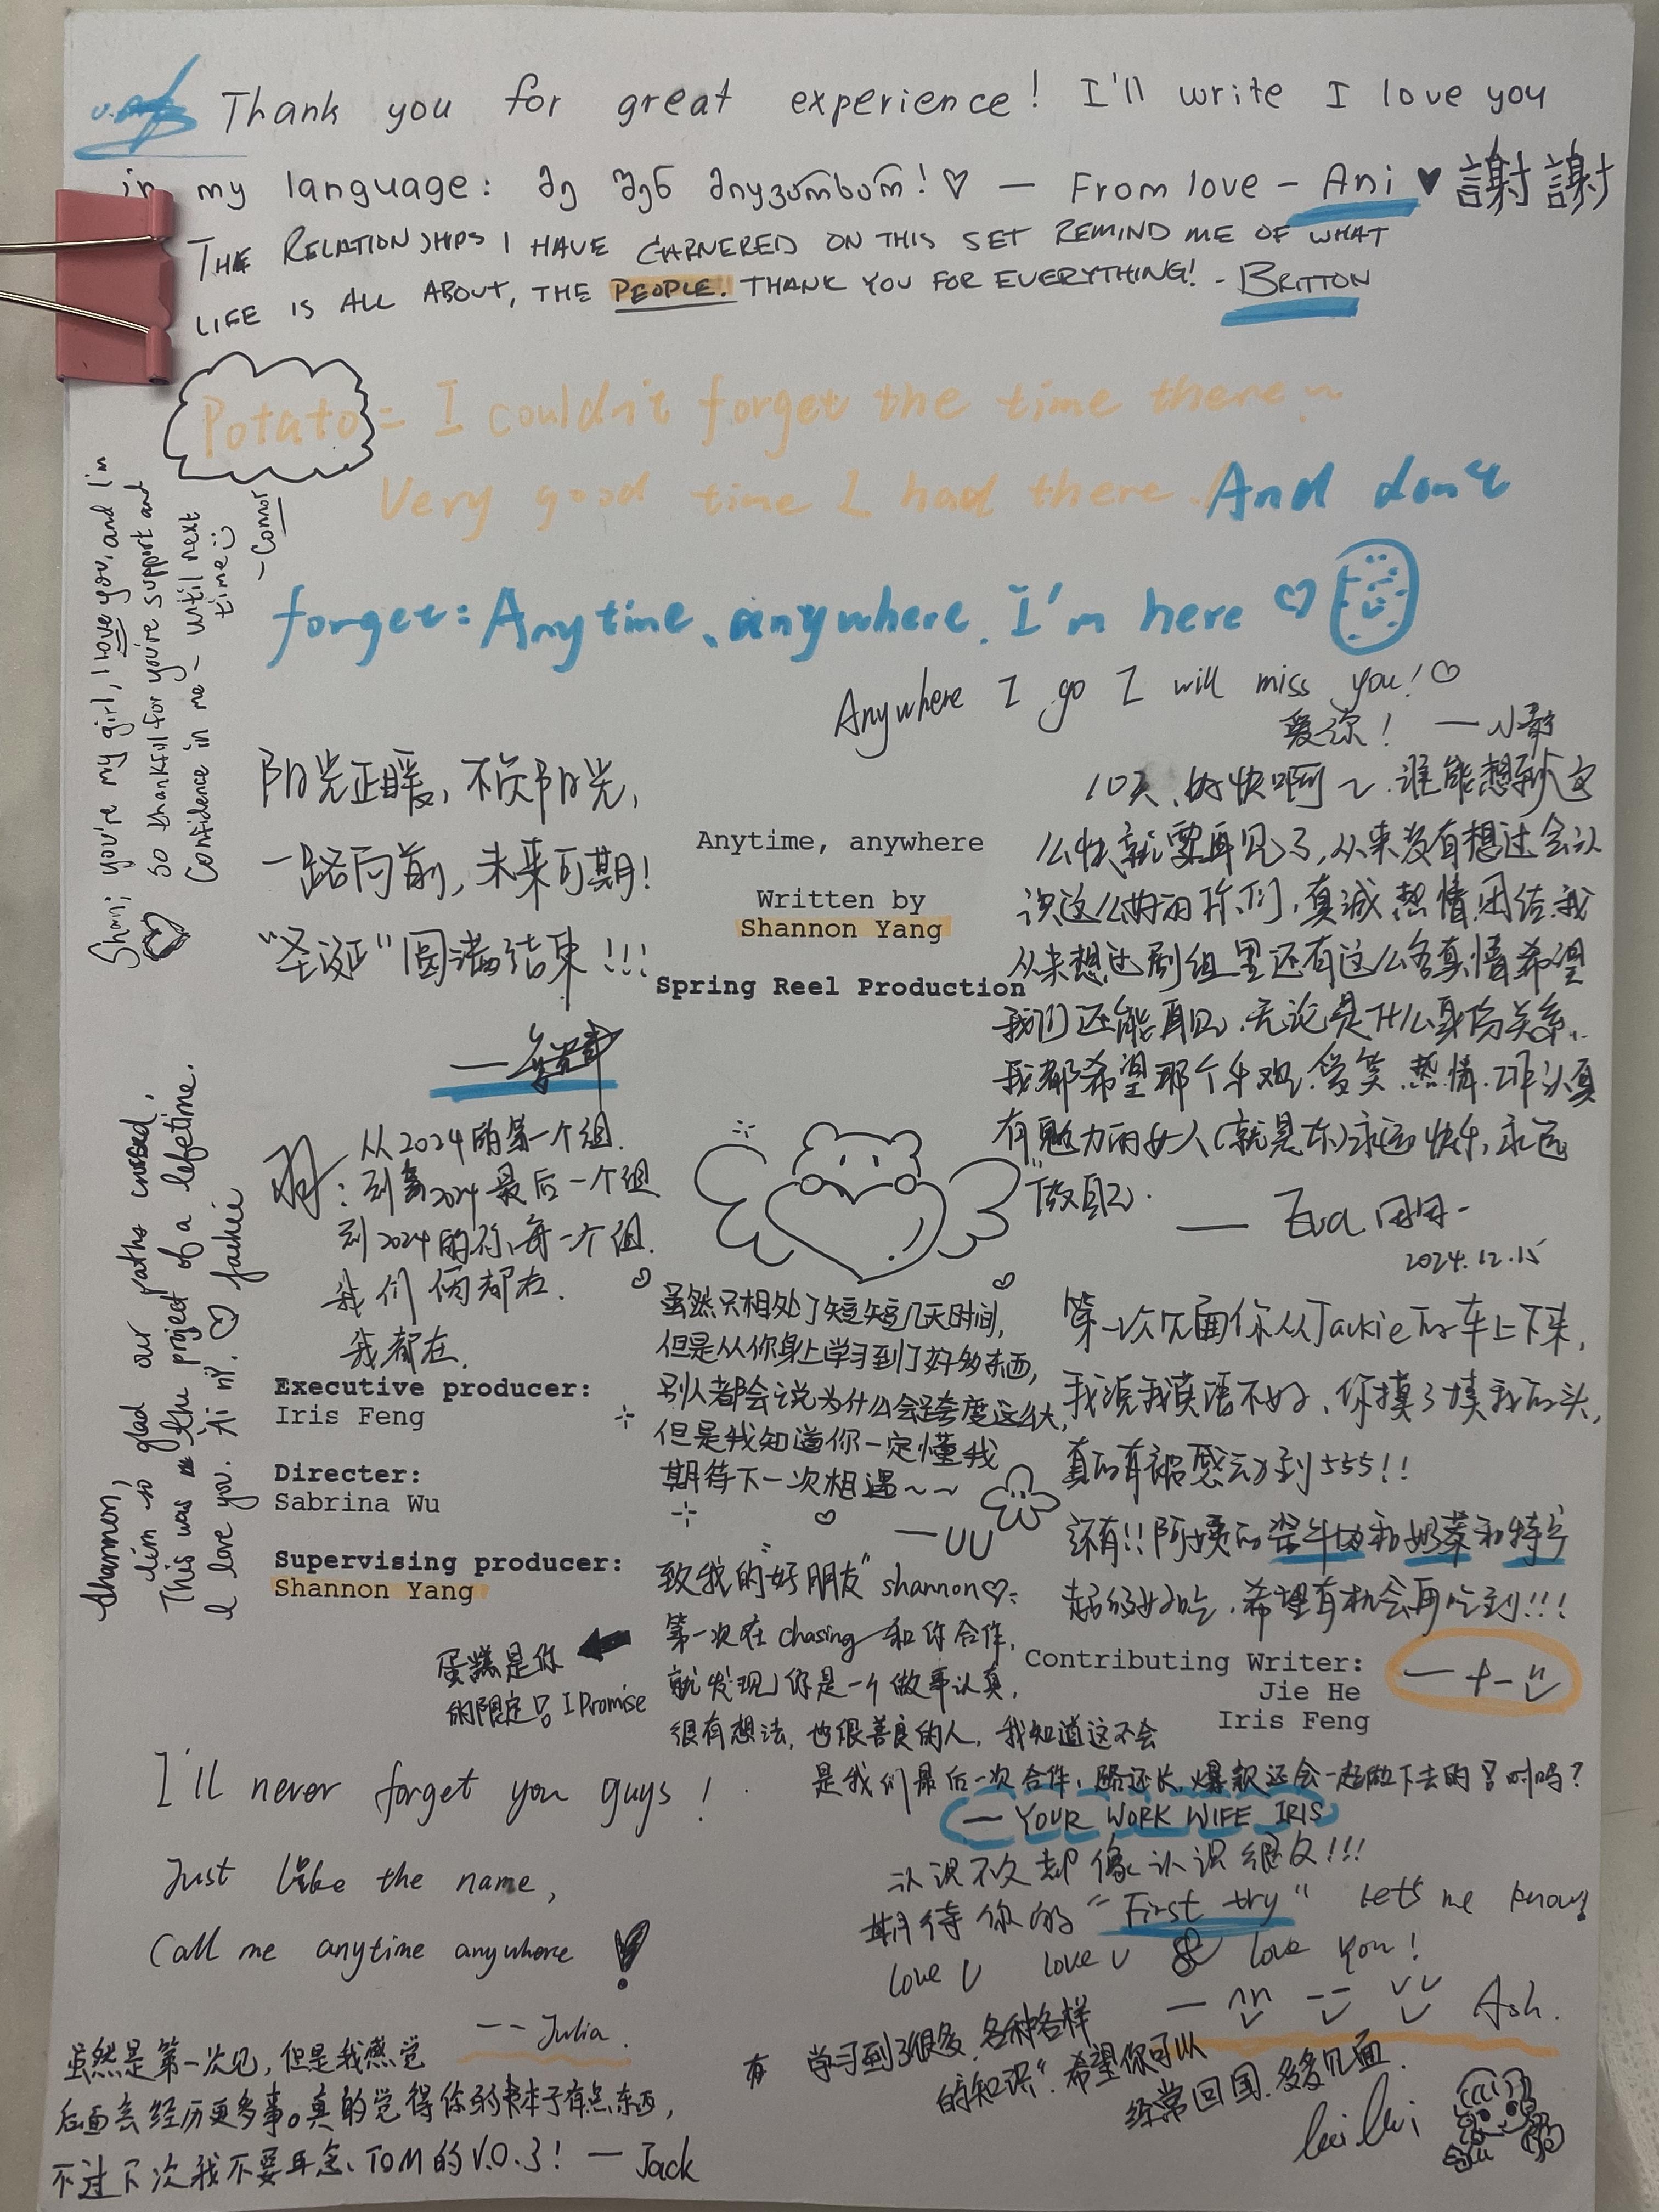 Thank you for great experience! I'll write I love you
in my language: მე შენ მიყვარხარ! ♡ — From love - Ani ♥ 謝謝
THE RELATIONSHIPS I HAVE GARNERED ON THIS SET REMIND ME OF WHAT
LIFE IS ALL ABOUT, THE PEOPLE. THANK YOU FOR EVERYTHING! - BRITTON
Potato = I couldn't forget the time there~
Very good time I had there. And don't
forget: Anytime、anywhere. I'm here ♡
Shan; you're my girl, I love you, and I'm
so thankful for you're support and
Confidence in me - until next
time :)
- Connor
Anywhere I go I will miss you! ♡
爱你！
阳光正暖，不负阳光，
一路向前，未来可期！
"圣诞"圆满结束！！！
Anytime, anywhere
Written by
Shannon Yang
Spring Reel Production
10天、好快啊~.谁能想到这
么快就要再见了，从来没有想过会认
识这么好的你们，真诚热情团结.我
从来想过剧组里还有这么多真情希望
我们还能再见.无论是什么身份关系.
我都希望那个 爱笑.热情.工作认真
有魅力的女人(就是你)永远快乐，永远
"做自己.
— Eva 用用-
2024.12.15
从2024的第一个组.
到 2024最后一个组
到2024的你每一个组.
我们俩都在.
我都在.
Shannon,
I'm so glad our paths crossed.
This was the project of a lifetime.
I love you. Ai ni. ♡ Jackie
Executive producer:
Iris Feng
Directer:
Sabrina Wu
Supervising producer:
Shannon Yang
虽然只相处了短短几天时间，
但是从你身上学习到了好多东西，
别人都会说为什么会跨度这么大，
但是我知道你一定懂我
期待下一次相遇~~
—UU
第一次见面你从Jackie的车上下来，
我说我英语不好、你摸了摸我的头，
真的有被感动到555!!
还有!!阿姨的 牛 和奶茶和
超级好吃.希望有机会再吃到!!!
— 十一
Contributing Writer:
Jie He
Iris Feng
致我的"好朋友" shannon♡:
第一次在 chasing 和你合作，
就发现你是一个做事认真，
很有想法，也很善良的人，我知道这不会
是我们最后一次合作，路还长，爆款还会一起做下去的 对吗？
— YOUR WORK WIFE IRIS
蛋糕是你
的限定 I Promise
I'll never forget you guys!
Just like the name,
Call me anytime anywhere
-- Julia.
认识不久却像认识很久!!!
期待你的 "First try" Let's me know
love U love U & love you!
— Ash.
虽然是第一次见，但是我感觉
后面会经历更多事。真的觉得你的本子有点东西，
不过下次我不要再念、TOM的V.O.了！— Jack
学习到了很多，各种各样
的"知识".希望你可以
经常回国.多多见面.